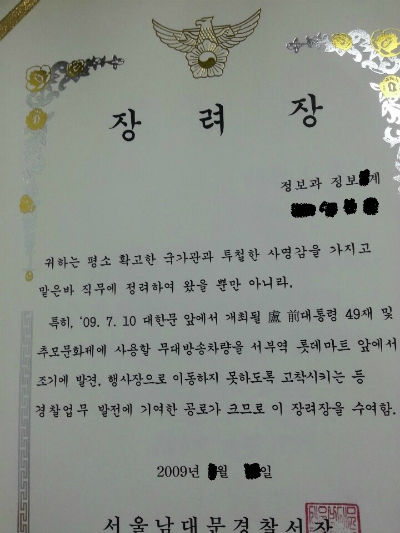 장 려 장
정보과 정보 계
귀하는 평소 확고한 국가관과 투철한 사명감을 가지고
맡은바 직무에 정려하여 왔을 뿐만 아니라.
특히, '09. 7. 10 대한문 앞에서 개최될 盧 前대통령 49재 및
추모문화제에 사용할 무대방송차량을 서부역 롯데마트 앞에서
조기에 발견, 행사장으로 이동하지 못하도록 고착시키는 등
경찰업무 발전에 기여한 공로가 크므로 이 장려장을 수여함.
2009년 월 일
서울남대문경찰서장